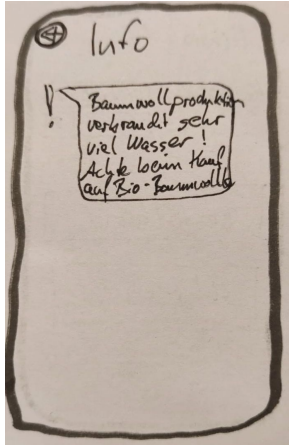 Info
!
Baumwollproduktion
verbraucht sehr
viel Wasser!
Achte beim Kauf
auf Bio-Baumwolle